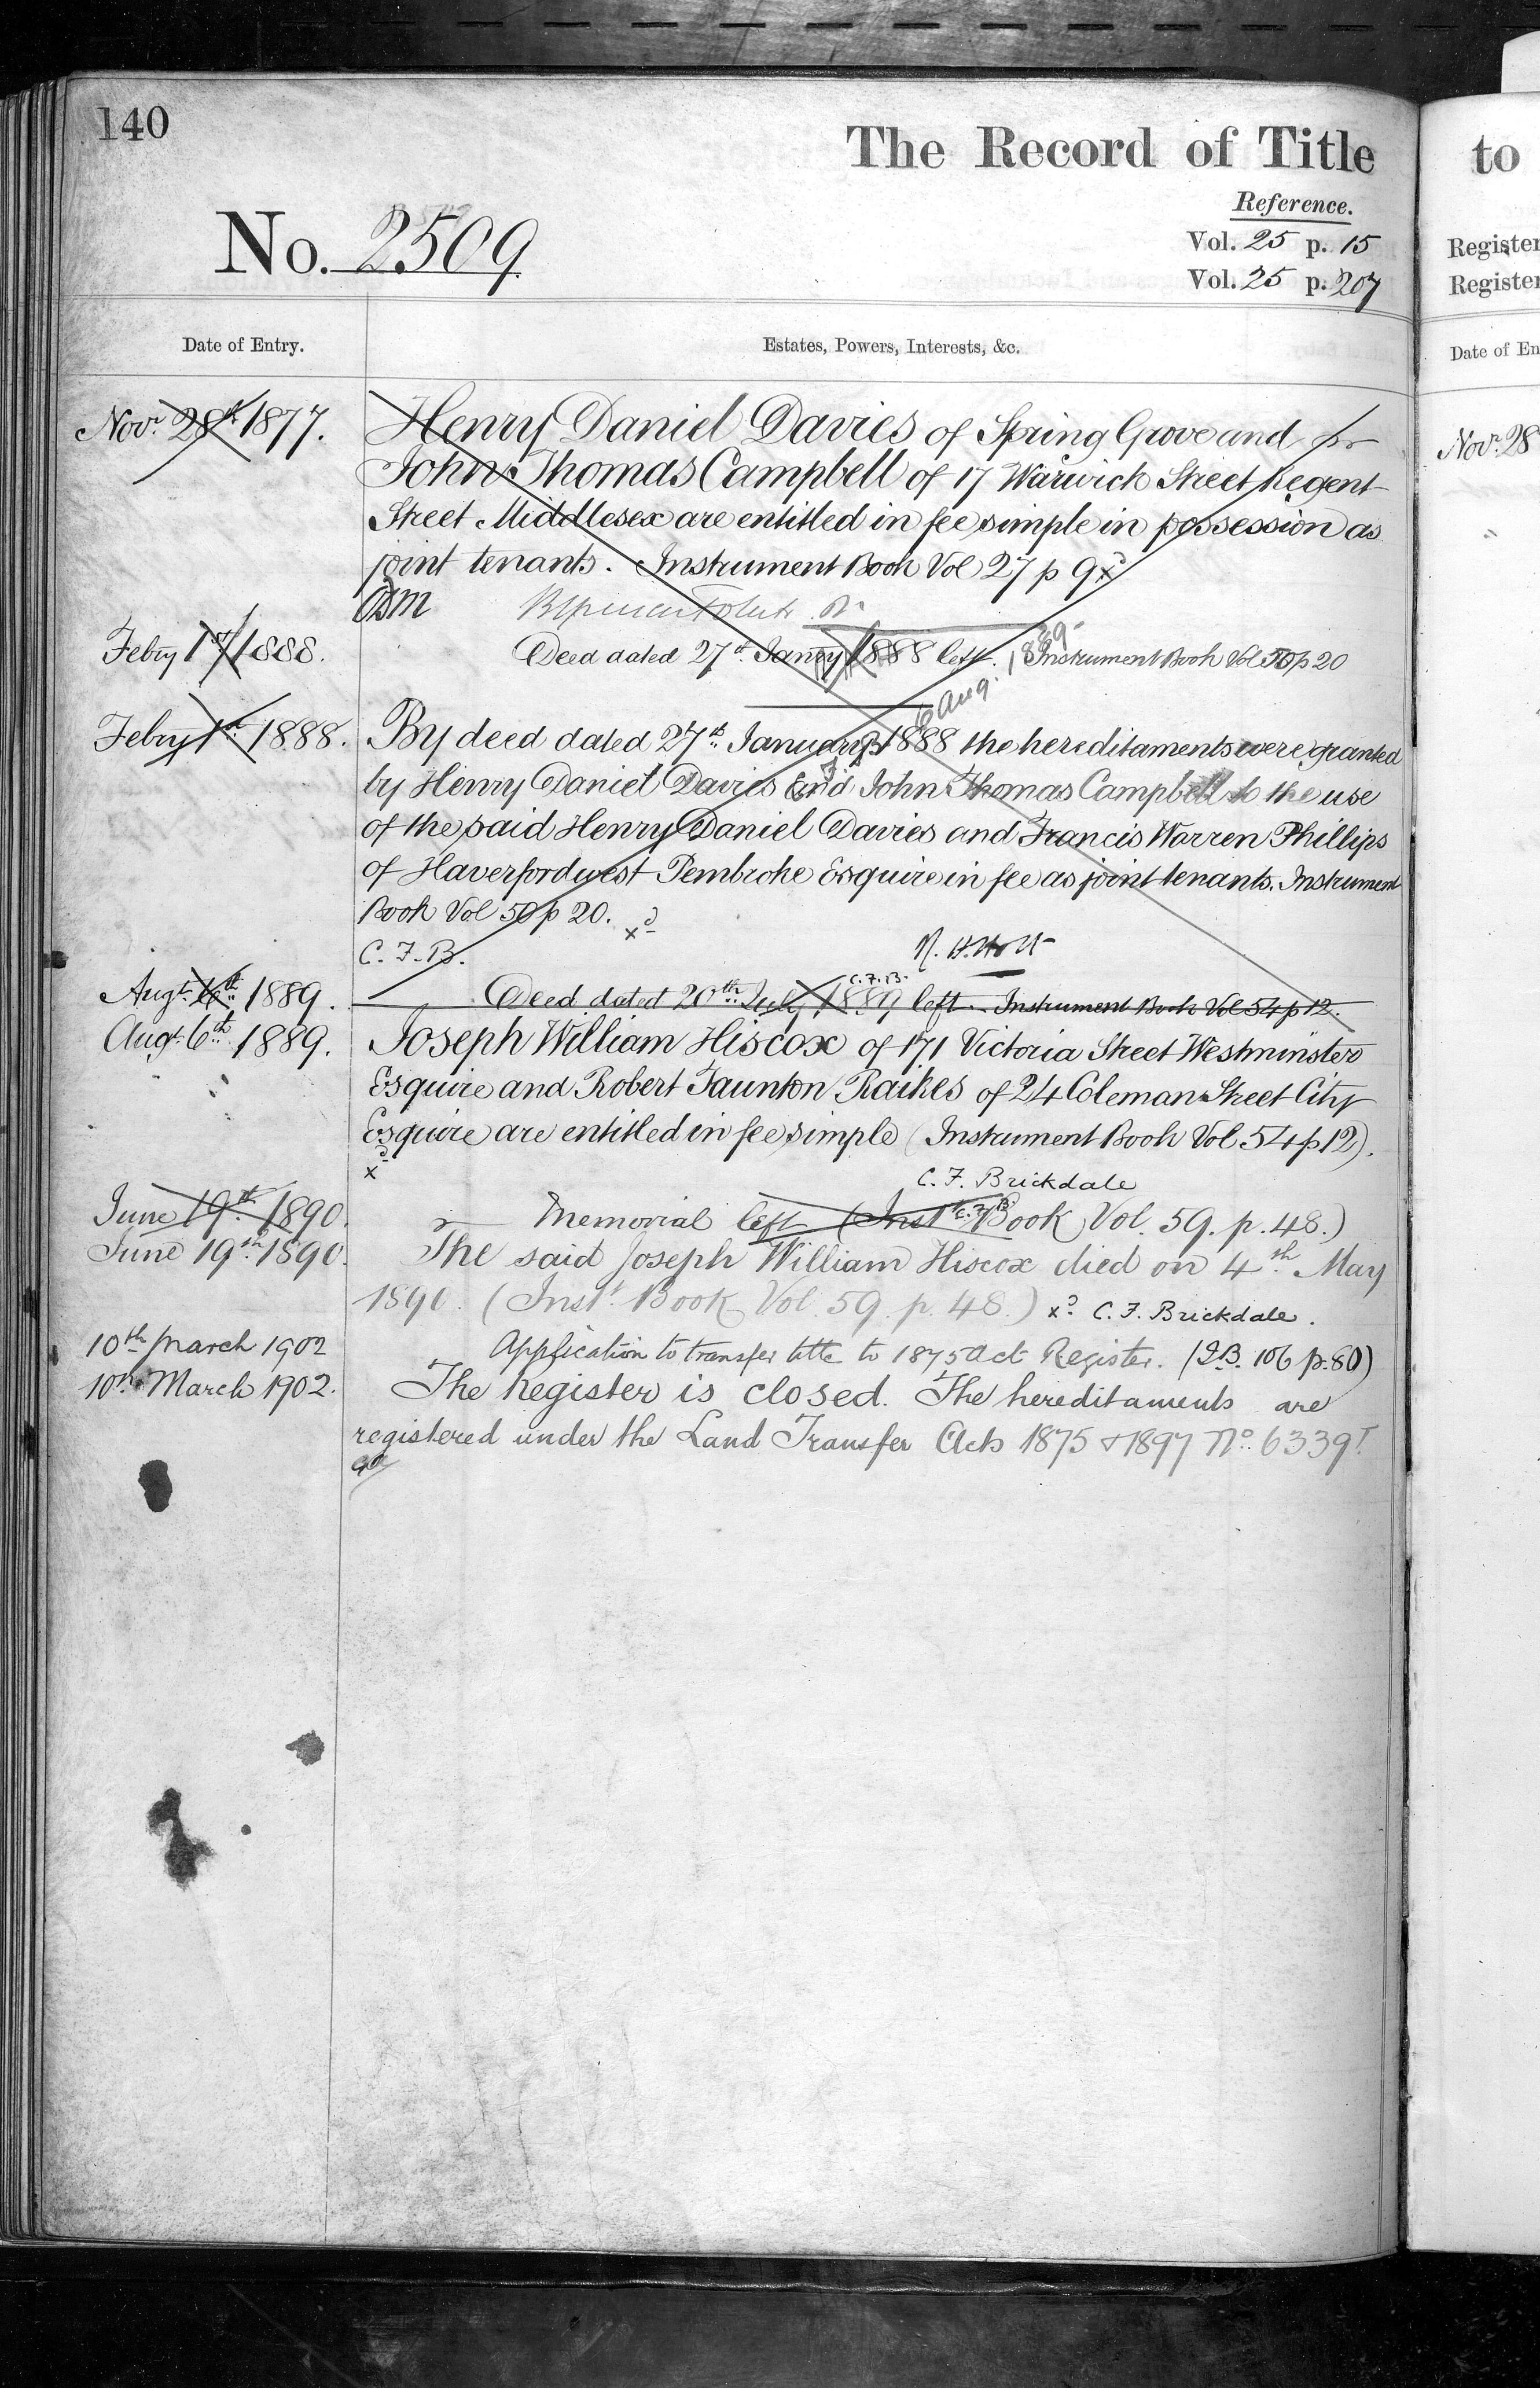 140
The Record of Title
Reference.
No. 2509
Vol. 25 p. 15
Vol. 25 p. 207
Date of Entry.
Estates, Powers, Interests, &c.
Novr. 28th 1877.
Henry Daniel Davies of Spring Grove and
John Thomas Campbell of 17 Warwick Street Regent
Street Middlesex are entitled in fee simple in possession as
joint tenants. Instrument Book Vol 27 p 9 xd
Febry 1st 1888.
Deed dated 27th Janry 1888 left. Instrument Book Vol 50 p 20
6 Aug. 1889
Febry 1st 1888.
By deed dated 27th January 1888 the hereditaments were granted
by Henry Daniel Davies and John Thomas Campbell to the use
of the said Henry Daniel Davies and Francis Warren Phillips
of Haverfordwest Pembroke Esquire in fee as joint tenants. Instrument
Book Vol 50 p 20. xd
C. F. B.
R. H. Holt
C.F.B.
Augt. 6th 1889.
Deed dated 20th July 1889 left. Instrument Book Vol 54 p 12.
Augt. 6th 1889.
Joseph William Hiscox of 171 Victoria Street Westminster
Esquire and Robert Taunton Raikes of 24 Coleman Street City
Esquire are entitled in fee simple (Instrument Book Vol 54 p 12).
xd
C. F. Brickdale
June 19th 1890.
Memorial left (Instt. Book Vol. 59. p. 48.)
C.F.B.
June 19th 1890.
The said Joseph William Hiscox died on 4th May
1890. (Instt. Book Vol. 59. p. 48.) xd. C. F. Brickdale.
10th March 1902
Application to transfer title to 1875 Act Register. (I.B. 106 p. 80)
10th March 1902.
The Register is closed. The hereditaments are
registered under the Land Transfer Acts 1875 & 1897 No. 6339
to
Register
Register
Date of En
Novr. 28